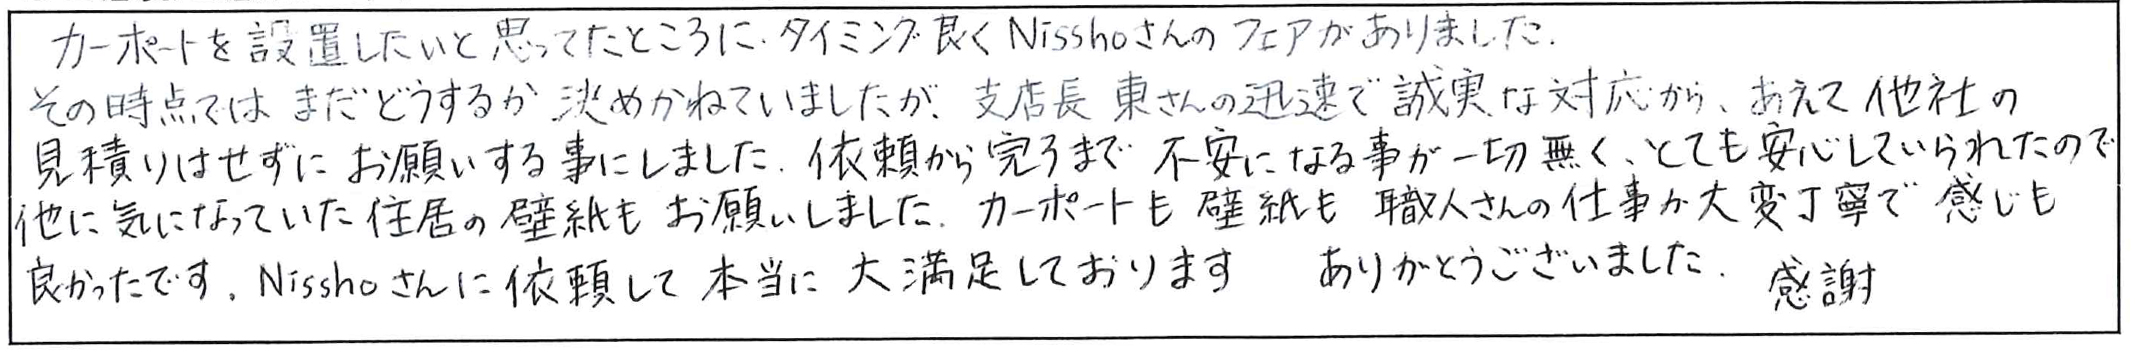 カーポートを設置したいと思ってたところに、タイミング良くNisshoさんのフェアがありました.
その時点ではまだどうするか決めかねていましたが、支店長 東さんの迅速で誠実な対応から、あえて他社の
見積りはせずにお願いする事にしました. 依頼から完了まで不安になる事が一切無く、とても安心していられたので
他に気になっていた住居の壁紙もお願いしました. カーポートも壁紙も職人さんの仕事が大変丁寧で感じも
良かったです。Nisshoさんに依頼して本当に大満足しております ありがとうございました. 感謝